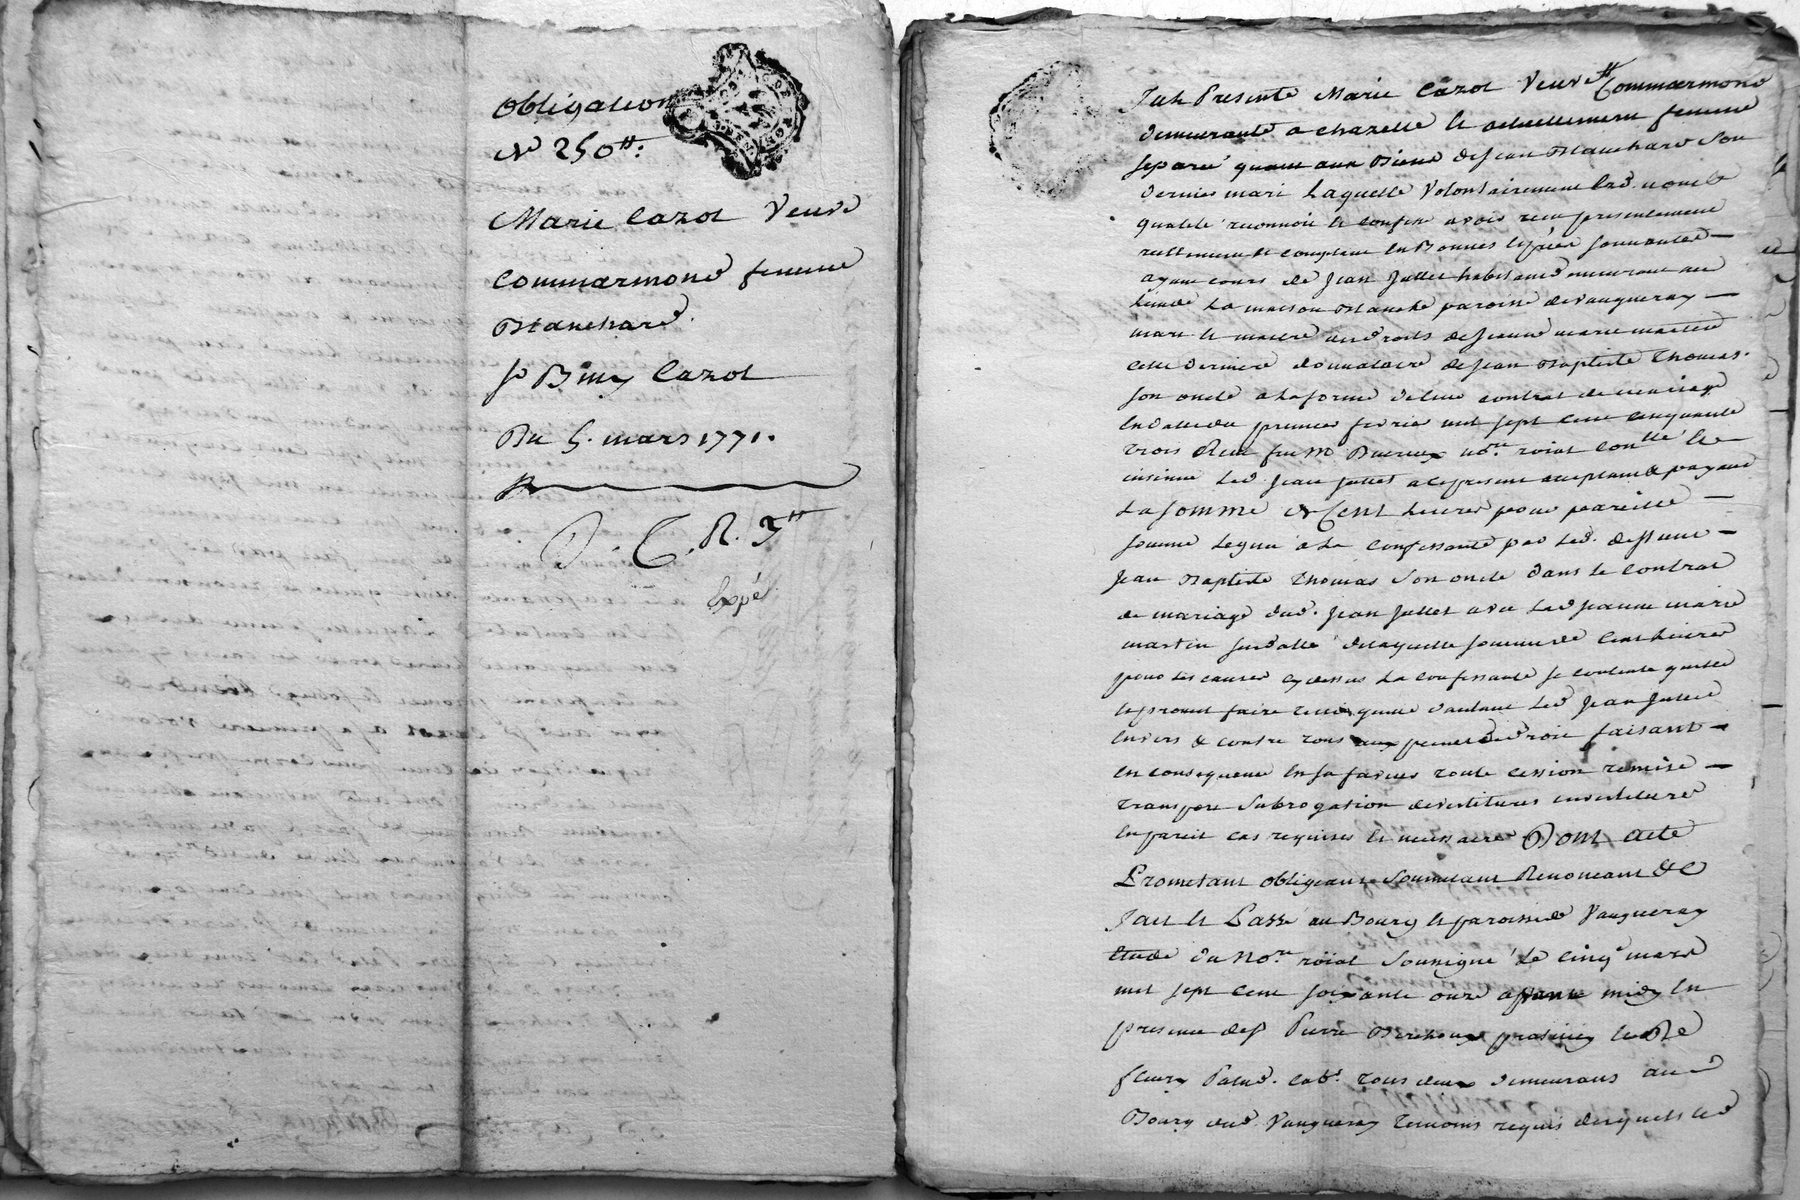 Obligation
de 250 ₶.
Marie Cazot Veuve
Commarmond femme
Blanchard.
Sr Cazot
Du 5. mars 1771.
D. C. R. 3 ₶
Expé.
Fut Presente Marie Cazot Veuve Commarmond
demeurante a chazelle et actuellement femme
separée quant aux Biens de Jean Blanchard son
dernier mari Laquelle Volontairement
qualité reconnoit et confesse avoir reçu presentement
reellement et comptant en Bonnes Espéces sonnantes
ayant cours de Jean Jullet habitant demeurant au
Lieu de La maison Blanche paroisse de Vaugneray
mari et maitre des droits de Jeanne marie martin
cette derniere donnataire de Jean Baptiste Thomas
son oncle a la forme de leur contrat de mariage
En datte du premier fevrier mil sept cent cinquante
trois Reçu feu Me no.re roial
Led. Jean Jullet a ce present acceptant & payant
La somme de Cent Livres pour pareille
somme Leguée a La confessante par Led. deffunt
Jean Baptiste Thomas Son oncle dans le Contrat
de mariage dud. Jean Jullet avec Lad Jeanne marie
martin susdatté de laquelle somme de Cent Livres
pour Les causes cydessus La confessante se contente quitte
et promet faire tenir quitte d'autant Led Jean Jullet
Envers & contre tous aux peines de droit faisant
en consequence En sa faveur toute cession remise
transport subrogation devestitures investitures
En pareil cas requises et necessaires Dont acte
Prometant obligeant Soumetant Renonceant &c
Fait et Passé au Bourg et paroisse de Vaugneray
Etude du No.re roial Soussigné Le Cinq mars
mil sept cent soixante onze apres midy En
presence de Sr Pierre praticien et de Sr
fleury tous deux demeurans au
Bourg dud. Vaugneray Temoins requis desquels led